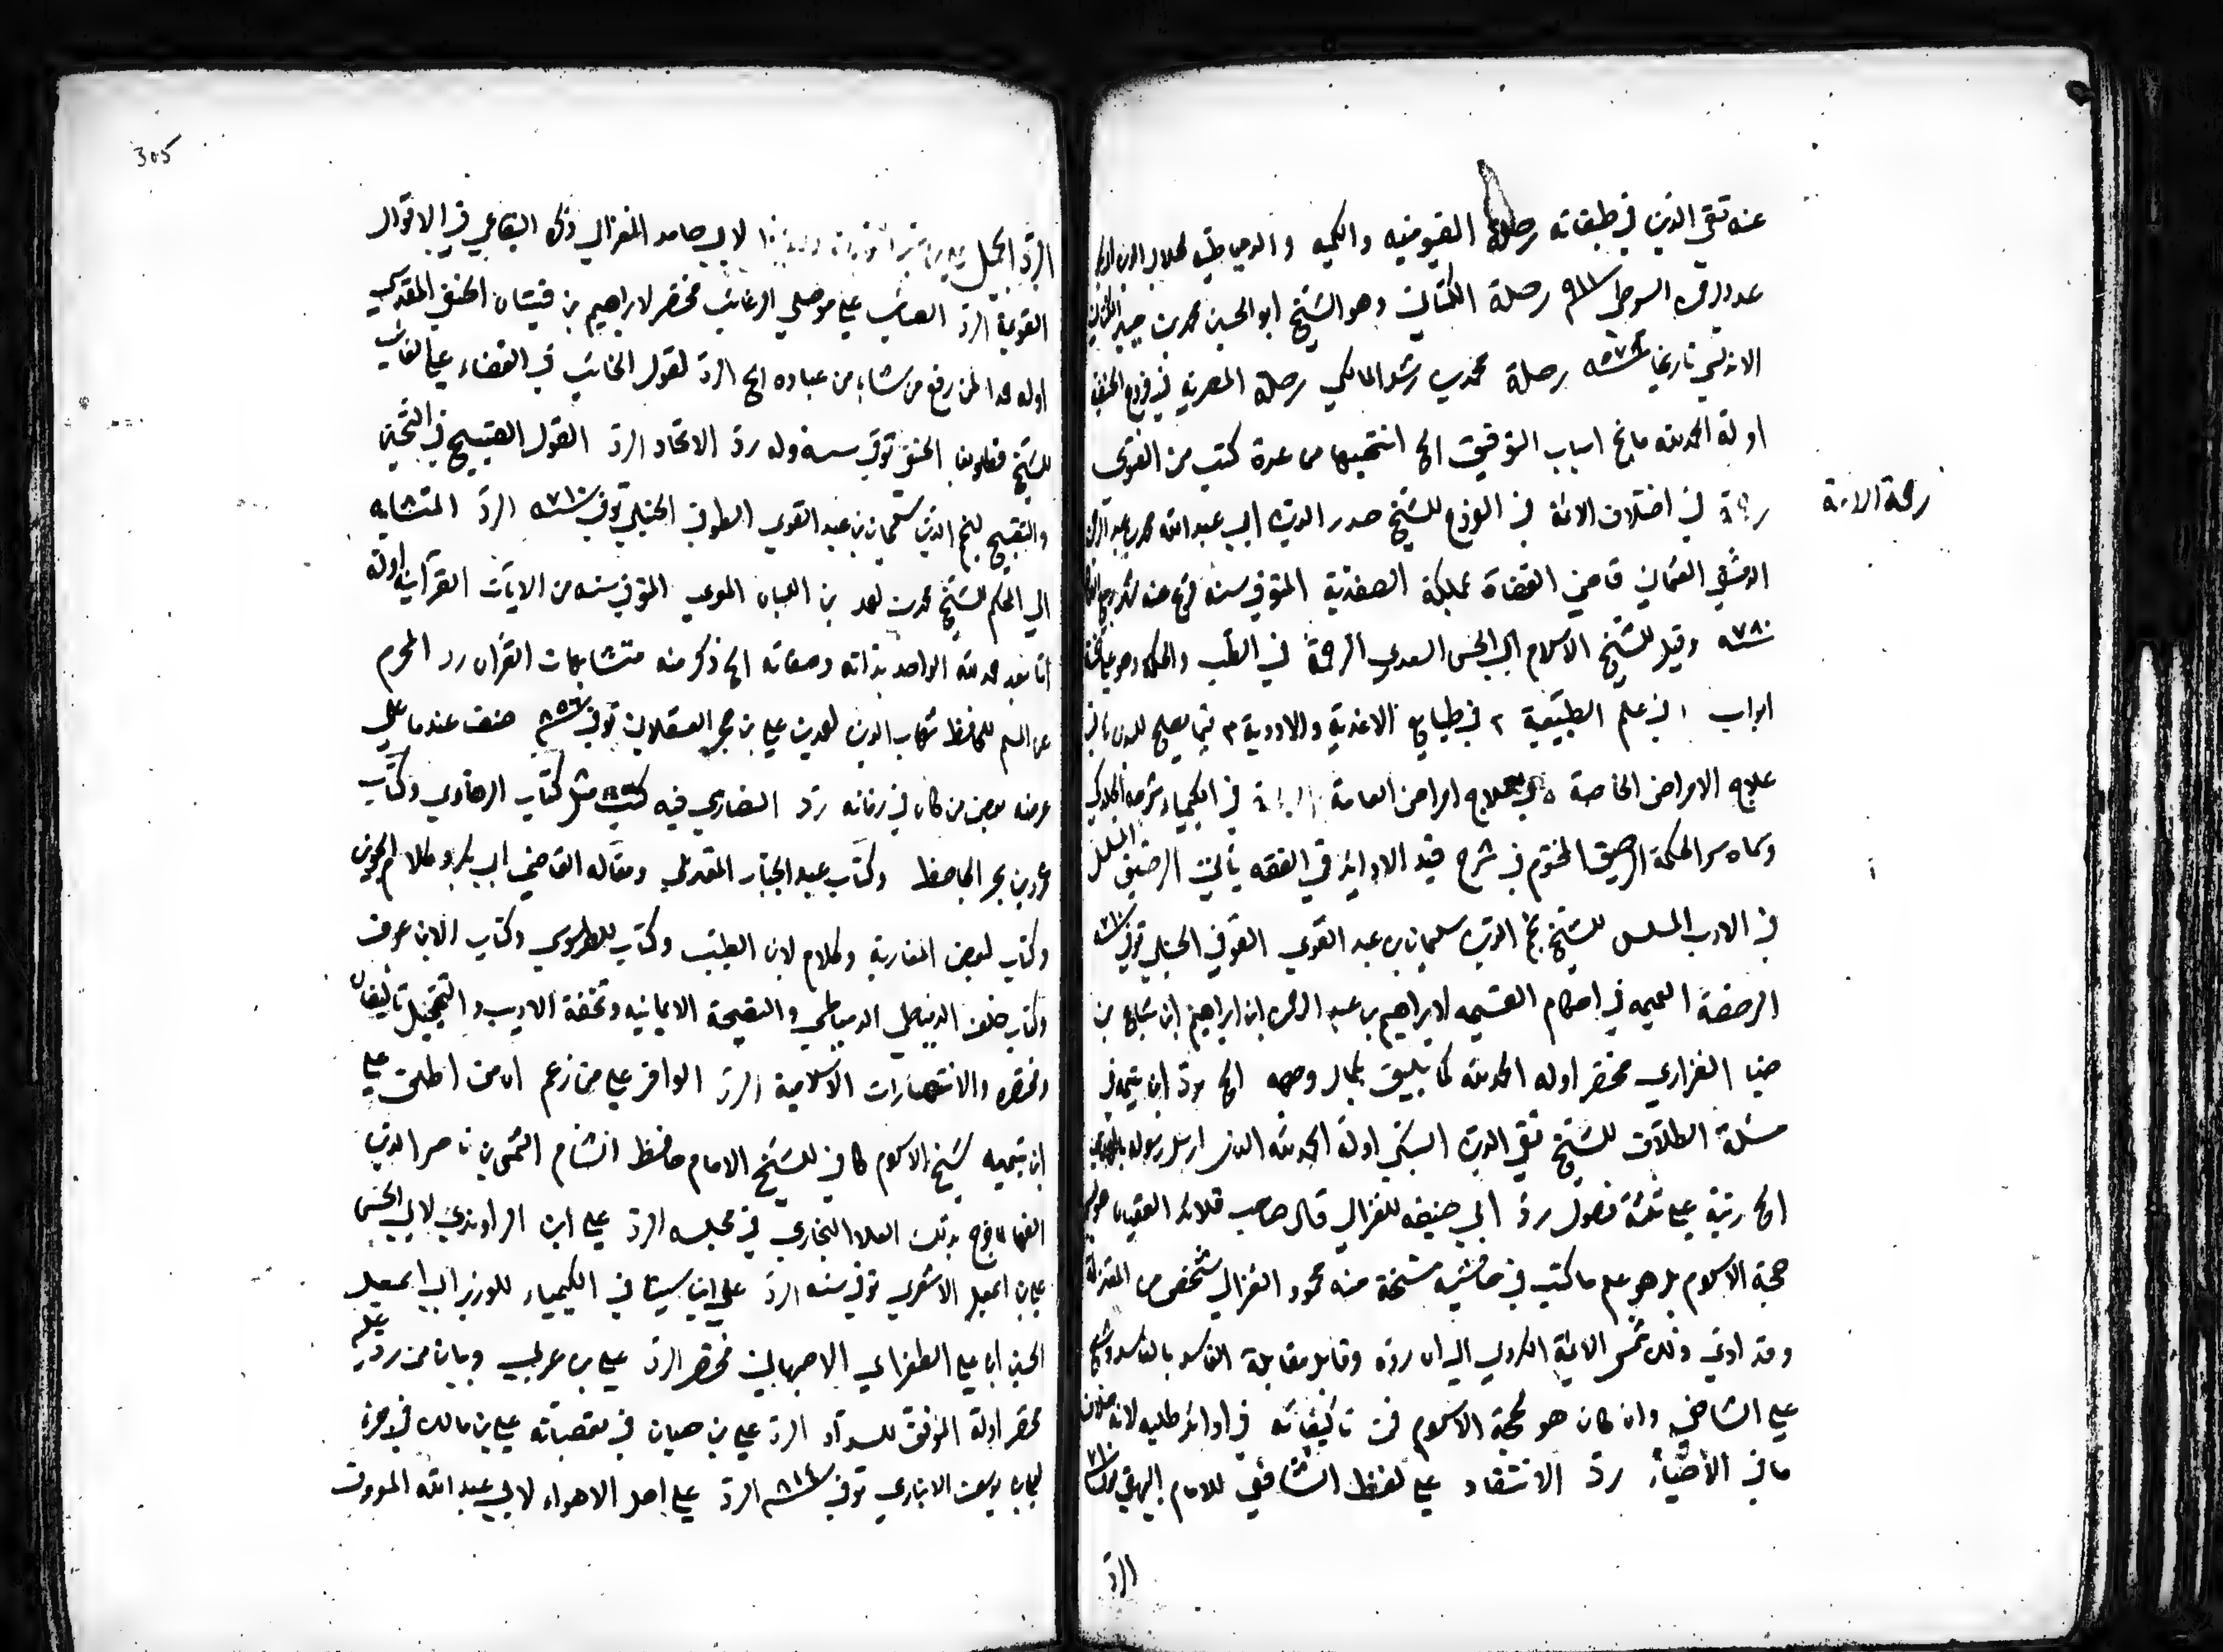 عنه تقي الدين في طبقاته رحلة الفيومية والمكية والدمياطية لجلال الدين
السيوطي ٩١١ رحلة الكتاني وهو الشيخ ابو الحسين محمد بن جبير
الاندلسي تاريخها رحلة محمد بن رشد المالكي رحلة المصرية في فروع الحنفية
اوله الحمد لله مانح اسباب التوفيق الخ انتخبها من عدة كتب من الفتوى
رحمة الامة
في اختلاف الائمة في الفروع للشيخ صدر الدين ابي عبد الله محمد بن عبد الرحمن
الدمشقي العثماني قاضي القضاة بمملكة الصفدية المتوفي سنة فرغ منه
٧٨٠ وقيل للشيخ الاسلام ابي الحسن السعدي الرحمة في الطب والحكمة وهو على خمسة
ابواب ١ في علم الطبيعية ٢ في طبايع الاغذية والادوية ٣ فيما يصلح للبدن
علاج الامراض الخاصة ٥ في علاج امراض العامة في الكيمياء شرحه الجلدكي
وسماه سر الحكمة الرحيق المختوم في شرح قيد الاوابد في الفقه يأتي الرحيق السلسل
في الادب المسلسل للشيخ نجم الدين سليمان بن عبد القوي الحنبلي توفي ٧١٠
الرخصة العميمه في احكام الغنيمه لابراهيم بن عبد الرحمن ابن ابراهيم ابن سباع بن
ضيا الفزاري مختصر اوله الحمد لله كما يليق بكمال وجهه الخ رد ابن تيمية في
مسئلة الطلاق للشيخ تقي الدين السبكي اوله الحمد لله الذي ارسل رسوله
الخ رتبة على ثلثة فصول رد ابي حنيفه للغزالي قال صاحب قلائد العقيان
حجة الاسلام بل هو على ما كتب في حاشية نسخة منه محمود الغزالي شخص من المعتزلة
وقد ادى ذلك شمس الائمة الكردري الى ان رده وقابل مقابلة الفاسد بالفاسد
على الشافعي وان كان هو لحجة الاسلام فمن تأليفاته في اوائل طلبه لانه خلاف
ما في الأحياء رد الانتقاد على لفظ الشافعي للامام البيهقي
الرد
305
الرد الجميل لابي حامد الغزالي ذكره البقاعي في الاقوال
القويمة الرد العايب على موصلي الرغائب مختصر لابراهيم بن الحنفي المقدسي
اوله حمدا لمن رفع من شاء من عباده الخ الرد لقول الخائب في القضاء على الغائب
للشيخ قطلوبغا الحنفي توفي سنة وله رد الاتحاد الرد القول القبيح في التحسين
والتقبيح لنجم الدين سليمان بن عبد القوي الطوفي الحنبلي توفي ٧١٠ الرد المتشابه
الى المحكم للشيخ محمد بن احمد بن اللبان المتوفي سنة من الايات القرآنية اوله
اما بعد حمد لله الواحد بذاته وصفاته الخ ذكر منه متشابهات القران رد المحرم
عن المسلم للحافظ شهاب الدين احمد بن علي بن حجر العسقلاني توفي صنف عندما على
عرضه بعض من كان في زمانه رد النصارى فيه كتب مثل كتاب الرهاوي وكتاب
عمرو بن بحر الجاحظ وكتاب عبد الجبار المعتزلي ومقاله القاضي ابي بكر وكلام الجويني
وكتاب لبعض المغاربة وكلام لابن الطيب وكتاب للطرسوسي وكتاب الابن عوف
وكتاب خلف الدمياطي والنصيحة الايمانيه وتحفة الاديب والتخجيل تأليفان
ومختصره والانتصارات الاسلامية الرد الوافر على من زعم ان من اطلق على
ابن تيميه شيخ الاسلام كافر للشيخ الامام حافظ الشام الشمس بن ناصر الدين
بذلك العلا البخاري في مجلسه الرد على ابن الراوندي لابي الحسن
علي بن اسمعيل الاشعري توفي سنه الرد على ابن سينا في الكيمياء للوزير ابي اسمعيل
الحسين ابن علي الطغرائي الاصبهاني مختصر الرد على بن عربي وبيان من رد عليه
مختصر اوله الموفق للسداد الرد على بن حيان في تعصباته على بن مالك في جزء
يوسف الابناري توفي ٨١٤ الرد على اهل الاهواء لابي عبد الله المعروف